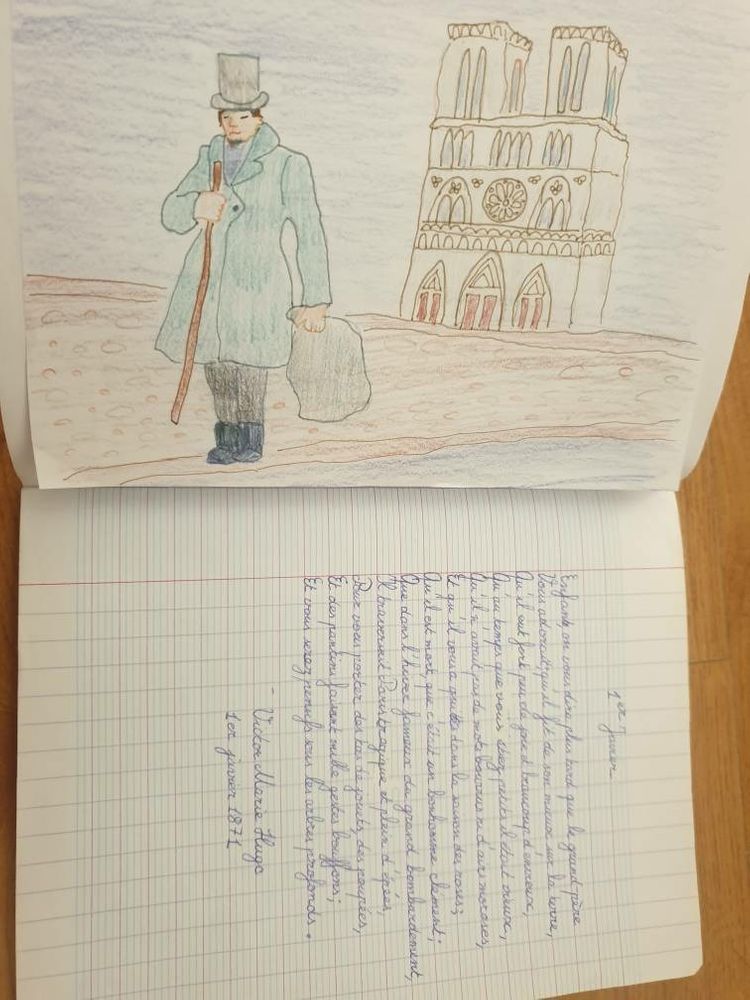 1er Janvier
Enfant, on vous dira plus tard que le grand-père
Vous adorait; qu'il fit de son mieux sur la terre,
Qu'il eut fort peu de joie et beaucoup d'envieux,
Qu'au temps que vous étiez petits il était vieux,
Qu'il n'avait pas de mots bourrus ni d'airs moroses,
Et qu'il vous a quittés dans la saison des roses;
Qu'il est mort, que c'était un bonhomme clément;
Que dans l'hiver fameux du grand bombardement,
Il traversait Paris tragique et plein d'épées,
Pour vous porter des tas de jouets, des poupées,
Et des pantins faisant mille gestes bouffons;
Et vous serez pensifs sous les arbres profonds.
- Victor Marie Hugo
1er janvier 1871